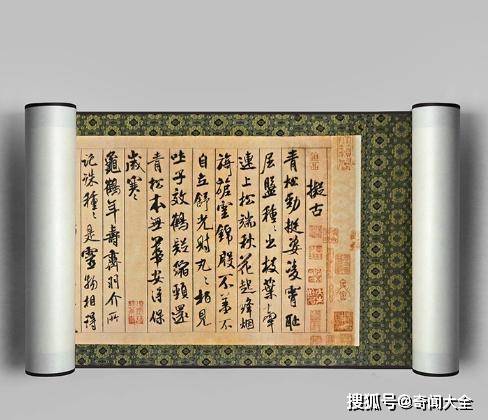 擬古
青松勁挺姿凌霄耻
屈盤種々出枝葉牽
連上松端秋花起絳烟
旖旎雲錦殷不羞不
自立舒光射丸々柏見
吐子效鶴疑縮頸還
青松本無華安得保
歲寒
龜鶴年壽齊羽介所
託殊種々是靈物相得
搜狐号@奇闻大全